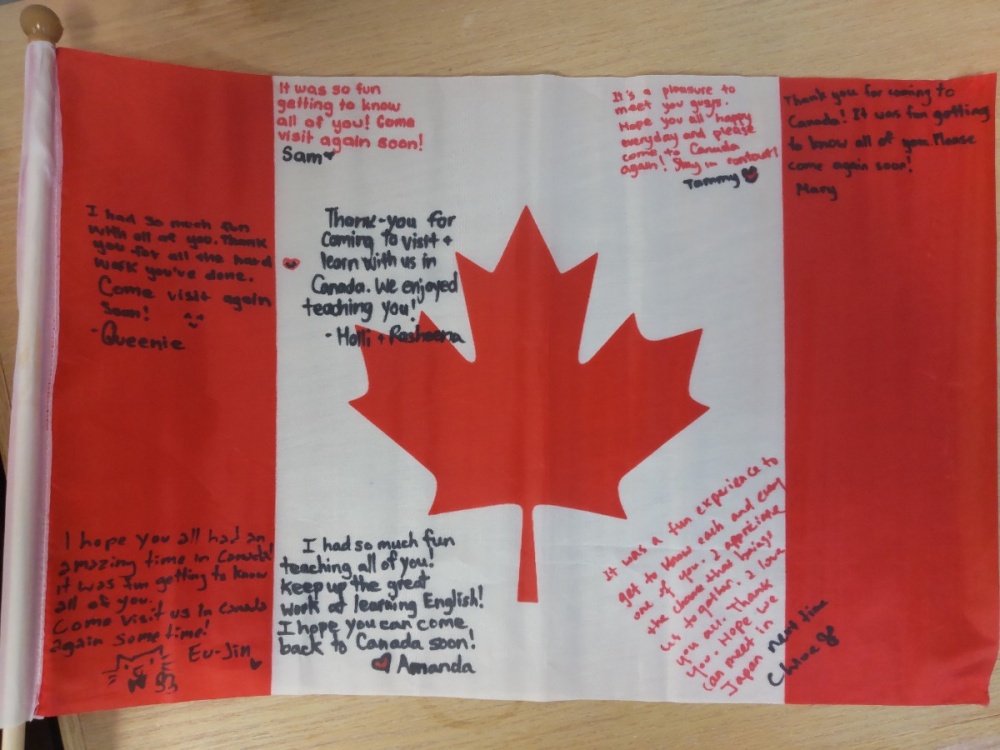 It was so fun
getting to know
all of you! Come
visit again soon!
Sam
It's a pleasure to
meet you guys.
Hope you all happy
everyday and please
come to Canada
again! Stay in contact!
Tammy
Thank you for coming to
Canada! It was fun getting
to know all of you. Please
come again soon!
Mary
I had so much fun
with all of you. Thank
you for all the hard
work you've done.
Come visit again
soon!
- Queenie
Thank-you for
Coming to visit +
learn with us in
Canada. We enjoyed
teaching you!
- Holli + Rasheena
I hope you all had an
amazing time in Canada!
it was fun getting to know
all of you.
Come visit us in Canada
again sometime!
Eu-Jin
I had so much fun
teaching all of you!
keep up the great
work at learning English!
I hope you can come
back to Canada soon!
Amanda
It was a fun experience to
get to know each and every
one of you. I appreciate
the chance that brings
us together. I love
you all. Thank
you. Hope we
can meet in
Japan next time
Chloe